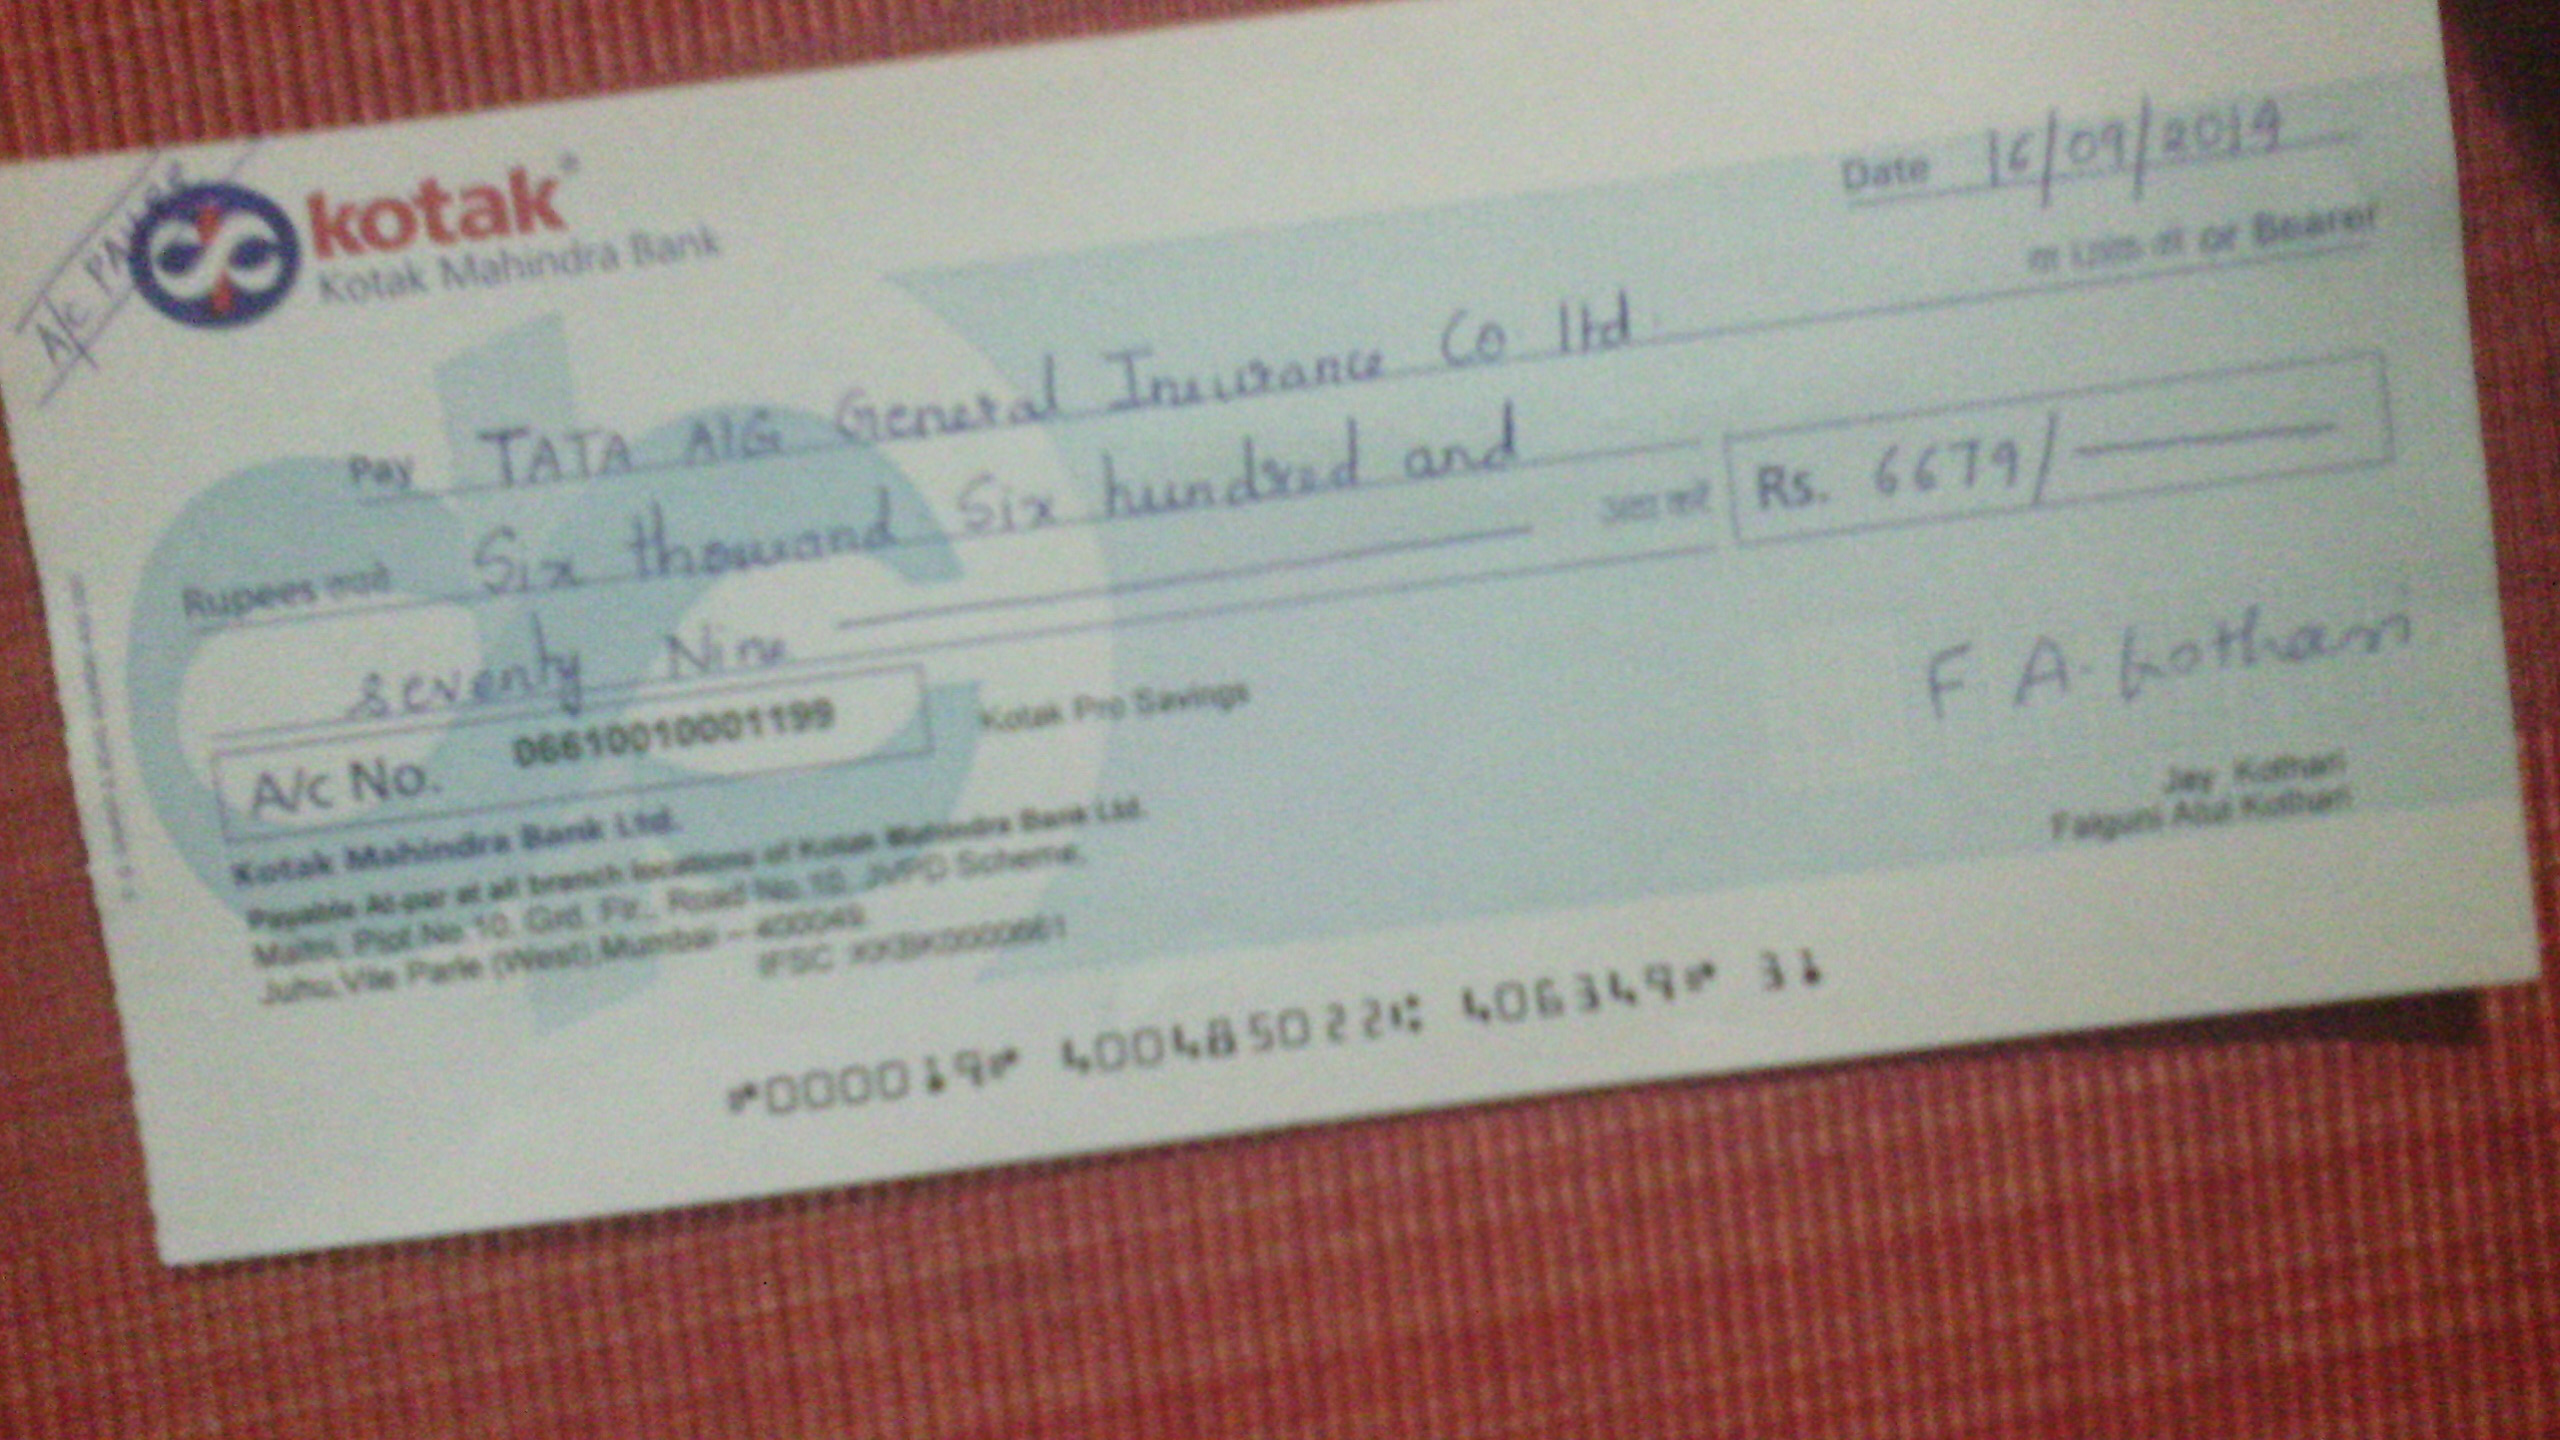 A/c PAYEE
kotak
Kotak Mahindra Bank
Date 16/09/2019
or Bearer
Pay TATA AIG General Insurance Co ltd
Rupees रुपये Six thousand Six hundred and
seventy Nine
Rs. 6679/
A/c No. 06610010001199
Kotak Pro Savings
F A. Kothari
Jay Kothari
Falguni Atul Kothari
Kotak Mahindra Bank Ltd.
Payable At-par at all branch locations of Kotak Mahindra Bank Ltd.
Maitri, Plot No.10, Grd. Flr., Road No.10, JVPD Scheme,
Juhu, Vile Parle (West), Mumbai – 400049
IFSC KKBK0000661
⑈000019⑈ 400485022⑆ 406349⑈ 31